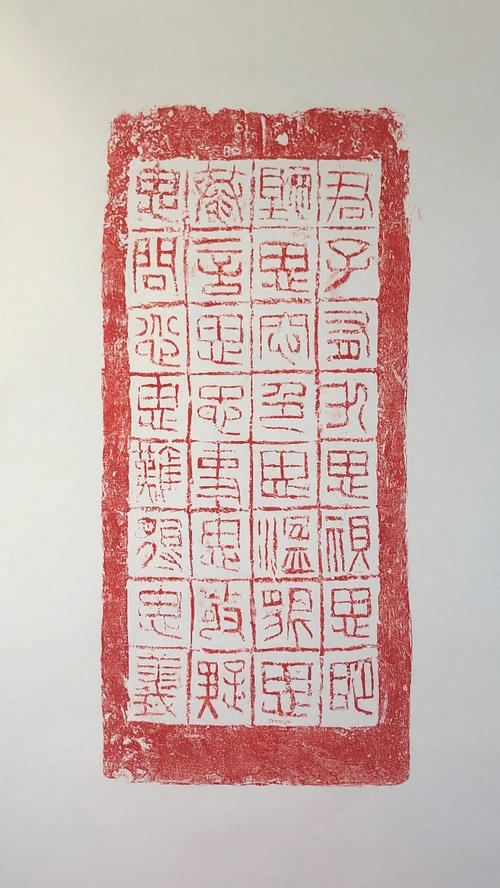 君子有九思視思明
聽思聰色思溫貌思
恭言思忠事思敬疑
思問忿思難得思義